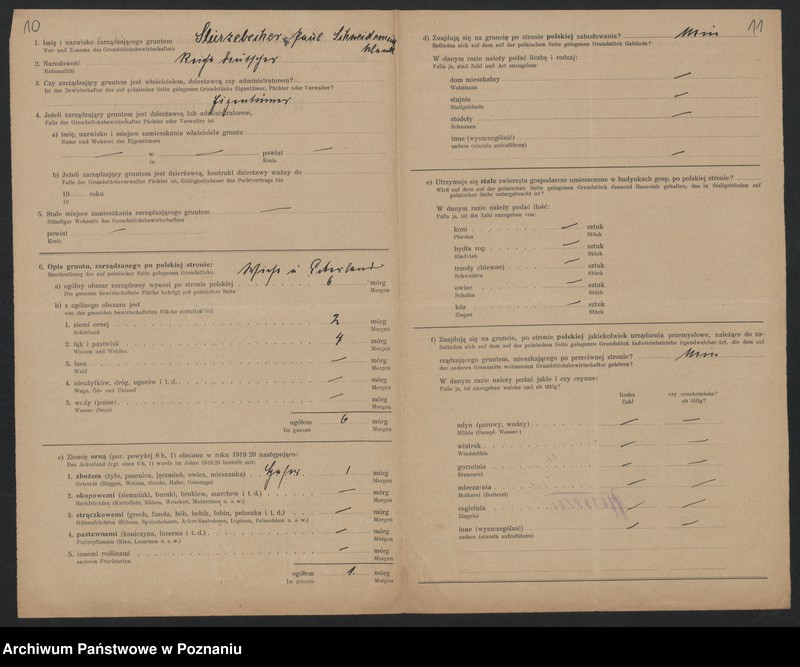 10
1. Imię i nazwisko zarządzającego gruntem Sturzebecher Paul Schneidemühl
Vor- und Zuname des Grundstückbewirtschafters
2. Narodowość Reichsdeutscher
Nationalität
3. Czy zarządzający gruntem jest właścicielem, dzierżawcą czy administratorem?
Ist der Bewirtschafter des auf polnischer Seite gelegenen Grundstücks Eigentümer, Pächter oder Verwalter?
Eigentümer
4. Jeżeli zarządzający gruntem jest dzierżawcą lub administratorem,
Falls der Grundstücksbewirtschafter Pächter oder Verwalter ist
a) imię, nazwisko i miejsce zamieszkania właściciela gruntu
Name und Wohnort des Eigentümers
w powiat
in Kreis
b) Jeżeli zarządzający gruntem jest dzierżawcą, kontrakt dzierżawy ważny do
Falls der Grundstücksverwalter Pächter ist, Gültigkeitsdauer des Pachtvertrags bis
19 roku
19
5. Stałe miejsce zamieszkania zarządzającego gruntem
Ständiger Wohnsitz des Grundstücksbewirtschafters
powiat
Kreis
6. Opis gruntu, zarządzanego po polskiej stronie: Wiese u Ackerland
Beschreibung des auf polnischer Seite gelegenen Grundstücks:
a) ogólny obszar zarządzany wynosi po stronie polskiej 6 mórg
Die gesamte bewirtschaftete Fläche beträgt auf polnischer Seite Morgen
b) z ogólnego obszaru jest
von der gesamten bewirtschafteten Fläche entfallen auf
1. ziemi ornej 2 mórg
Ackerland Morgen
2. łąk i pastwisk 4 mórg
Wiesen und Weiden Morgen
3. lasu mórg
Wald Morgen
4. nieużytków, dróg, ugorów i t. d. mórg
Wege, Öd- und Unland Morgen
5. wody (jezior) mórg
Wasser (Seen) Morgen
ogółem 6 mórg
Im ganzen Morgen
c) Ziemię orną (por. powyżej 6 b, 1) obsiano w roku 1919/20 następująco:
Das Ackerland (vgl. oben 6 b, 1) wurde im Jahre 1919/20 bestellt mit:
1. zbożem (żyto, pszenica, jęczmień, owies, mieszanka) Hafer 1 mórg
Getreide (Roggen, Weizen, Gerste, Hafer, Gemenge) Morgen
2. okopowemi (ziemniaki, buraki, brukiew, marchew i t. d.) mórg
Hackfrüchten (Kartoffeln, Rüben, Wrucken, Mohrrüben u. s. w.) Morgen
3. strączkowemi (groch, fasola, bób, bobik, łubin, peluszka i t. d.) mórg
Hülsenfrüchten (Erbsen, Speisebohnen, Acker-Saubohnen, Lupinen, Peluschken u. s. w.) Morgen
4. pastewnemi (koniczyna, lucerna i t. d.) mórg
Futterpflanzen (Klee, Luzernen u. s. w.) Morgen
5. innemi roślinami mórg
anderen Fruchtarten Morgen
ogółem 1 mórg
Im ganzen Morgen
11
d) Znajdują się na gruncie po stronie polskiej zabudowania? Nein
Befinden sich auf dem auf der polnischen Seite gelegenen Grundstück Gebäude?
W danym razie należy podać liczbę i rodzaj:
Falls ja, sind Zahl und Art anzugeben:
dom mieszkalny
Wohnhaus
stajnie
Stallgebäude
stodoły
Scheunen
inne (wyszczególnić)
andere (einzeln aufzuführen)
e) Utrzymuje się stale zwierzęta gospodarcze umieszczane w budynkach gosp. po polskiej stronie?
Wird auf dem auf der polnischen Seite gelegenen Grundstück dauernd Hausvieh gehalten, das in Stallgebäuden auf
polnischer Seite untergebracht ist?
W danym razie należy podać ilość:
Falls ja, ist die Zahl anzugeben von:
koni sztuk
Pferden Stück
bydła rog. sztuk
Rindvieh Stück
trzody chlewnej sztuk
Schweinen Stück
owiec sztuk
Schafen Stück
kóz sztuk
Ziegen Stück
f) Znajdują się na gruncie, po stronie polskiej jakiekolwiek urządzenia przemysłowe, należące do za-
Befinden sich auf dem auf der polnischen Seite gelegenen Grundstück Industriebetriebe irgendwelcher Art, die dem auf
rządzającego gruntem, mieszkającego po przeciwnej stronie? Nein
der anderen Grenzseite wohnenden Grundstücksbewirtschafter gehören?
W danym razie należy podać jakie i czy czynne:
Falls ja, ist anzugeben welche und ob tätig?
liczba czy uruchomione?
Zahl ob tätig?
młyn (parowy, wodny)
Mühle (Dampf- Wasser-)
wiatrak
Windmühle
gorzelnia
Brennerei
mleczarnia
Molkerei (Butterei)
cegielnia
Ziegelei
inne (wyszczególnić)
andere (einzeln aufzuführen)
Archiwum Państwowe w Poznaniu